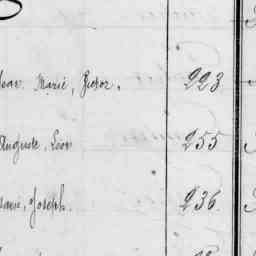 Marie, Victor. 223
Auguste, Léon 255
Joseph. 236